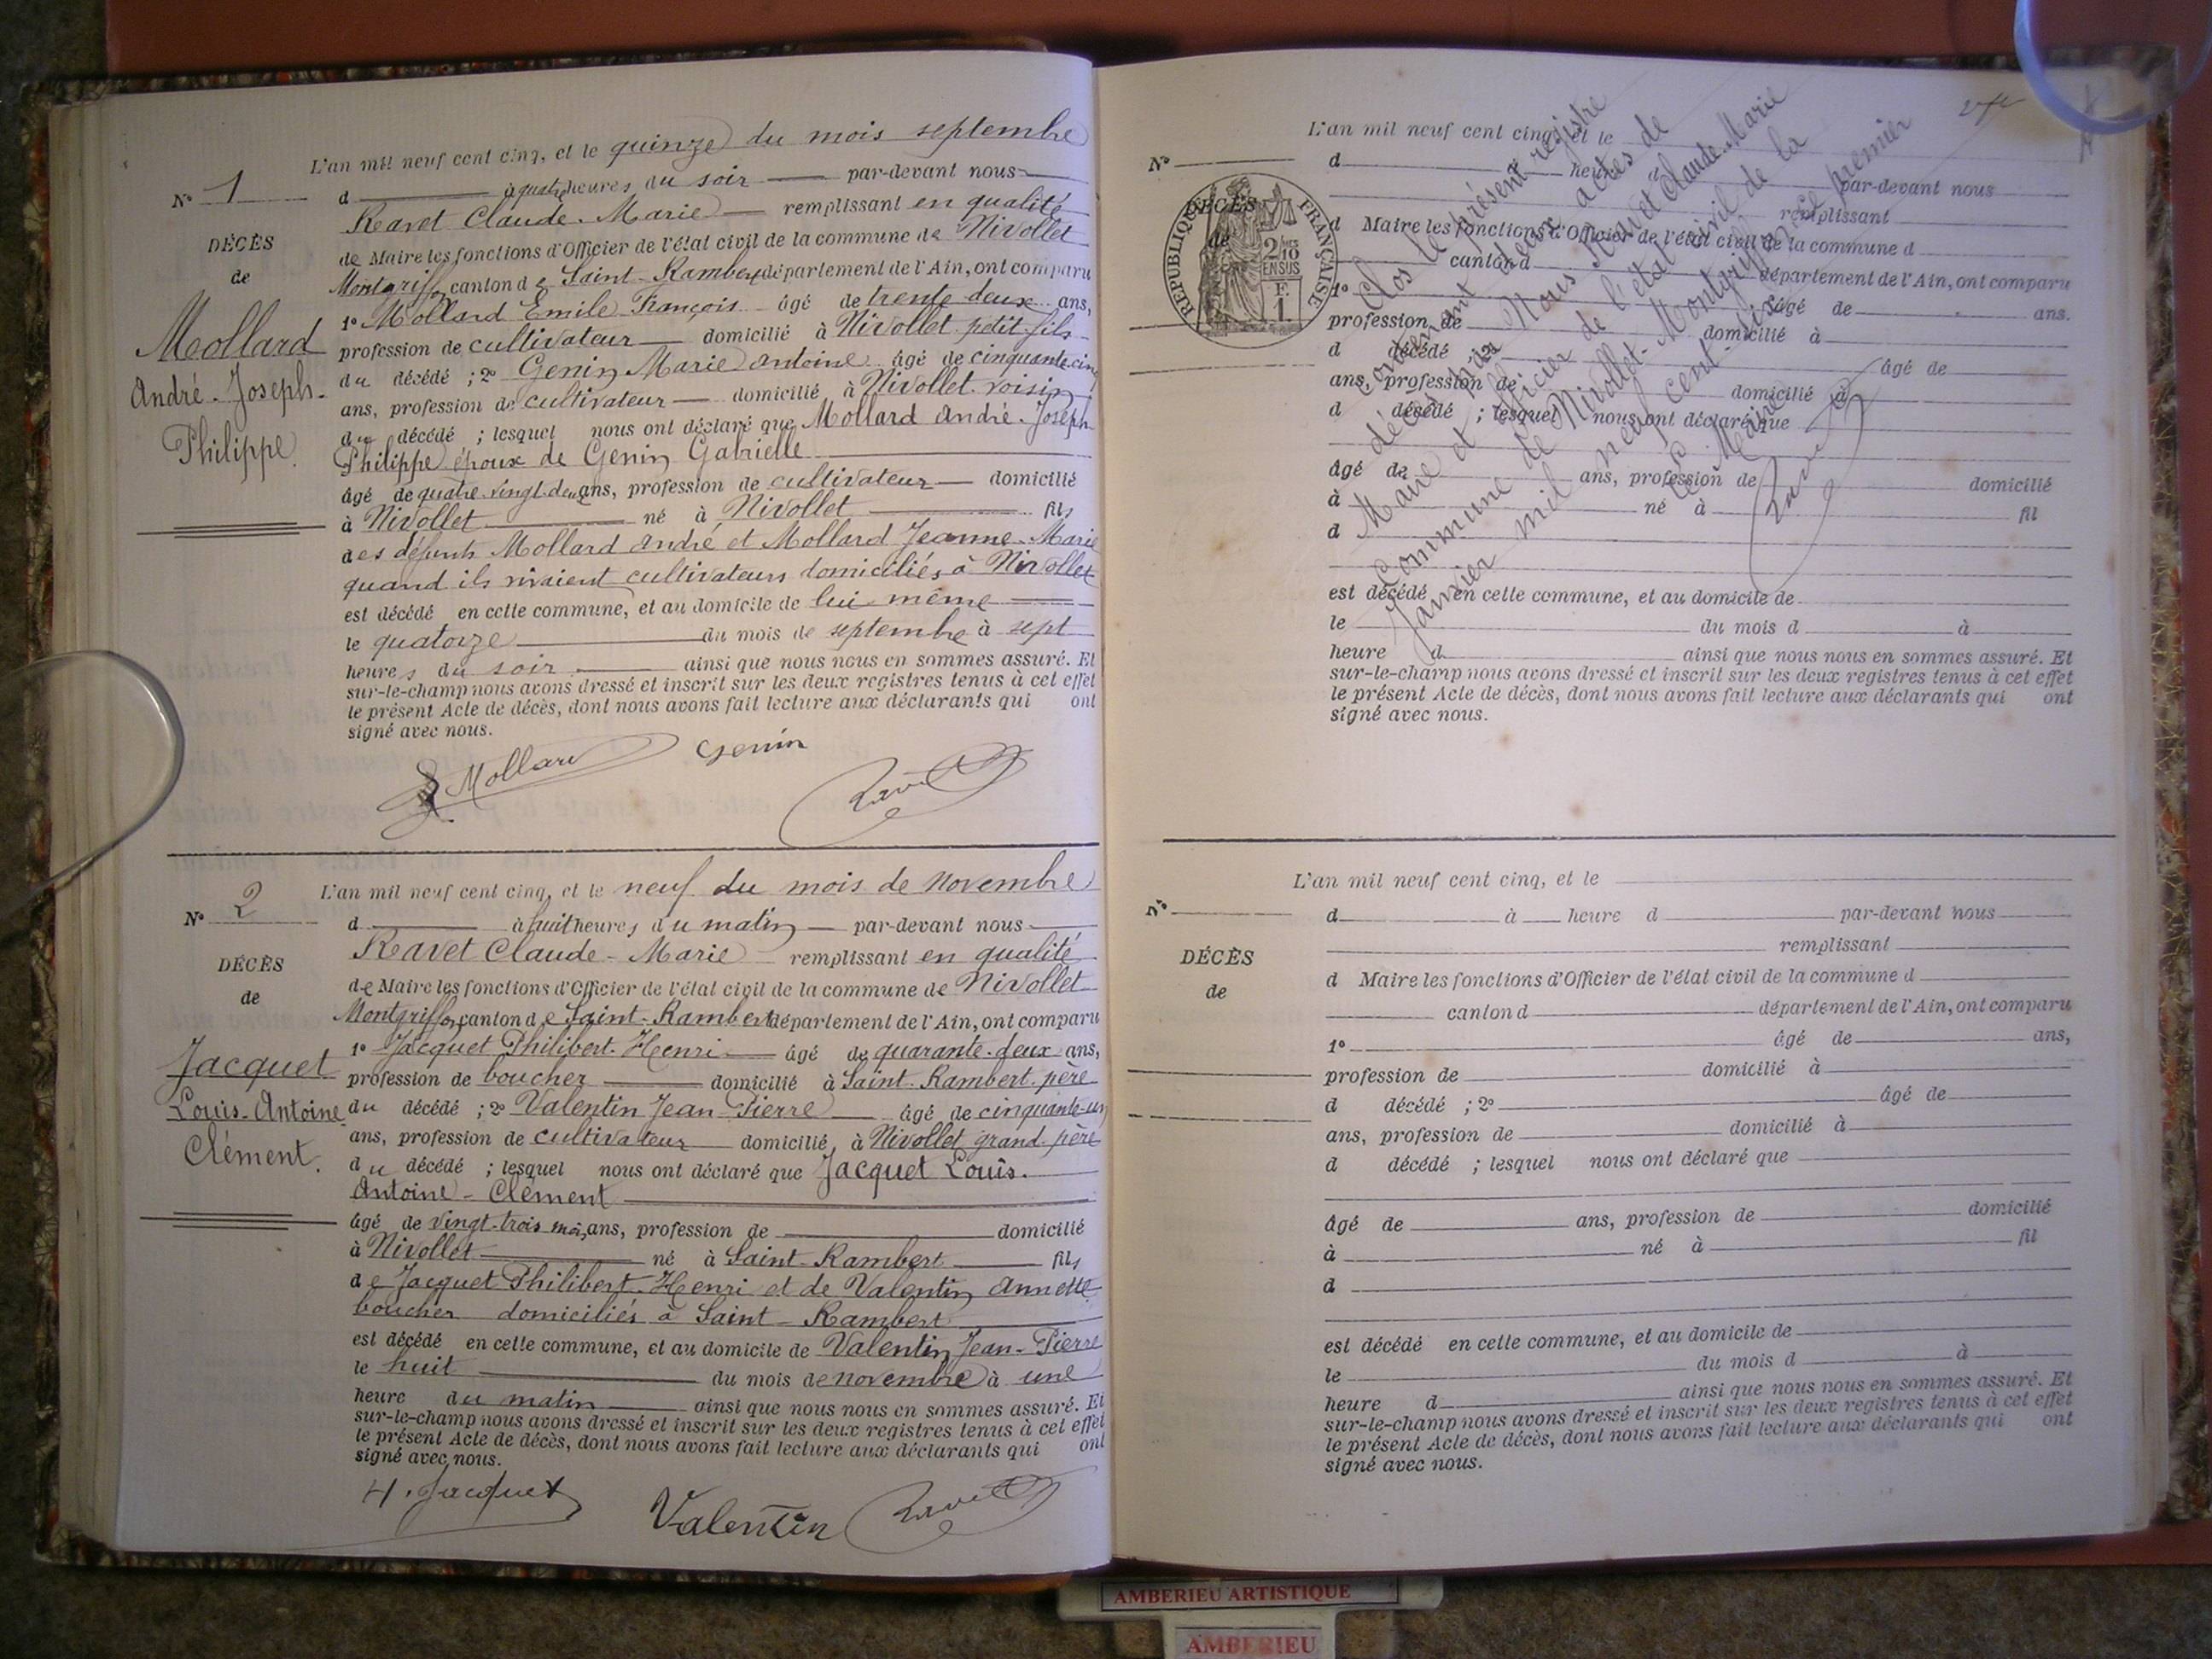 L'an mil neuf cent cinq, et le quinze du mois septembre
N° 1
d à quatre heures du soir par-devant nous
Ravet Claude-Marie remplissant en qualité
DÉCÈS
de Maire les fonctions d'Officier de l'état civil de la commune de Nivollet
de
Montgriffon canton de Saint-Rambert département de l'Ain, ont comparu
1° Mollard Emile François âgé de trente deux ans,
Mollard
profession de cultivateur domicilié à Nivollet petit-fils
André-Joseph-
du décédé ; 2° Genin Marie Antoine âgé de cinquante cinq
ans, profession de cultivateur domicilié à Nivollet voisin
Philippe.
du décédé ; lesquel nous ont déclaré que Mollard André-Joseph
Philippe époux de Genin Gabrielle
âgé de quatre-vingt-deux ans, profession de cultivateur domicilié
à Nivollet né à Nivollet fils
des défunts Mollard André et Mollard Jeanne-Marie
quand ils vivaient cultivateurs domiciliés à Nivollet
est décédé en cette commune, et au domicile de lui-même
le quatorze du mois de septembre à sept
heures du soir ainsi que nous nous en sommes assuré. Et
sur-le-champ nous avons dressé et inscrit sur les deux registres tenus à cet effet
le présent Acte de décès, dont nous avons fait lecture aux déclarants qui ont
signé avec nous.
Mollard Genin
Ravet
L'an mil neuf cent cinq, et le neuf du mois de novembre
N° 2
d à huit heures du matin par-devant nous
Ravet Claude-Marie remplissant en qualité
DÉCÈS
de Maire les fonctions d'Officier de l'état civil de la commune de Nivollet
de
Montgriffon canton de Saint-Rambert département de l'Ain, ont comparu
1° Jacquet Philibert-Henri âgé de quarante-deux ans,
Jacquet
profession de boucher domicilié à Saint-Rambert père
Louis-Antoine-
du décédé ; 2° Valentin Jean-Pierre âgé de cinquante-un
ans, profession de cultivateur domicilié à Nivollet grand-père
Clément.
du décédé ; lesquel nous ont déclaré que Jacquet Louis-
Antoine-Clément
âgé de vingt-trois mois ans, profession de domicilié
à Nivollet né à Saint-Rambert fils
de Jacquet Philibert-Henri et de Valentin Annette
boucher domiciliés à Saint-Rambert
est décédé en cette commune, et au domicile de Valentin Jean-Pierre
le huit du mois de novembre à une
heure du matin ainsi que nous nous en sommes assuré. Et
sur-le-champ nous avons dressé et inscrit sur les deux registres tenus à cet effet
le présent Acte de décès, dont nous avons fait lecture aux déclarants qui ont
signé avec nous.
H. Jacquet
Valentin Ravet
L'an mil neuf cent cinq, et le
N°
d heure par-devant nous
remplissant
DÉCÈS
de
d Maire les fonctions d'Officier de l'état civil de la commune d
canton d département de l'Ain, ont comparu
1° âgé de ans.
profession de domicilié à
d décédé ; 2° âgé de
ans, profession de domicilié à
d décédé ; lesquel nous ont déclaré que
âgé de ans, profession de domicilié
à né à fil
d
est décédé en cette commune, et au domicile de
le du mois d à
heure d ainsi que nous nous en sommes assuré. Et
sur-le-champ nous avons dressé et inscrit sur les deux registres tenus à cet effet
le présent Acte de décès, dont nous avons fait lecture aux déclarants qui ont
signé avec nous.
RÉPUBLIQUE FRANÇAISE
2/10
EN SUS
Clos le présent registre
contenant deux actes de
décès par Nous Ravet Claude-Marie
Maire et officier de l'état civil de la
Commune de Nivollet-Montgriffon, ce premier
Janvier mil neuf cent six
Le Maire
Ravet
L'an mil neuf cent cinq, et le
N°
d à heure d par-devant nous
remplissant
DÉCÈS
d Maire les fonctions d'Officier de l'état civil de la commune d
de
canton d département de l'Ain, ont comparu
1° âgé de ans,
profession de domicilié à
d décédé ; 2° âgé de
ans, profession de domicilié à
d décédé ; lesquel nous ont déclaré que
âgé de ans, profession de domicilié
à né à fil
d
est décédé en cette commune, et au domicile de
le du mois d à
heure d ainsi que nous nous en sommes assuré. Et
sur-le-champ nous avons dressé et inscrit sur les deux registres tenus à cet effet
le présent Acte de décès, dont nous avons fait lecture aux déclarants qui ont
signé avec nous.
AMBERIEU ARTISTIQUE
AMBERIEU